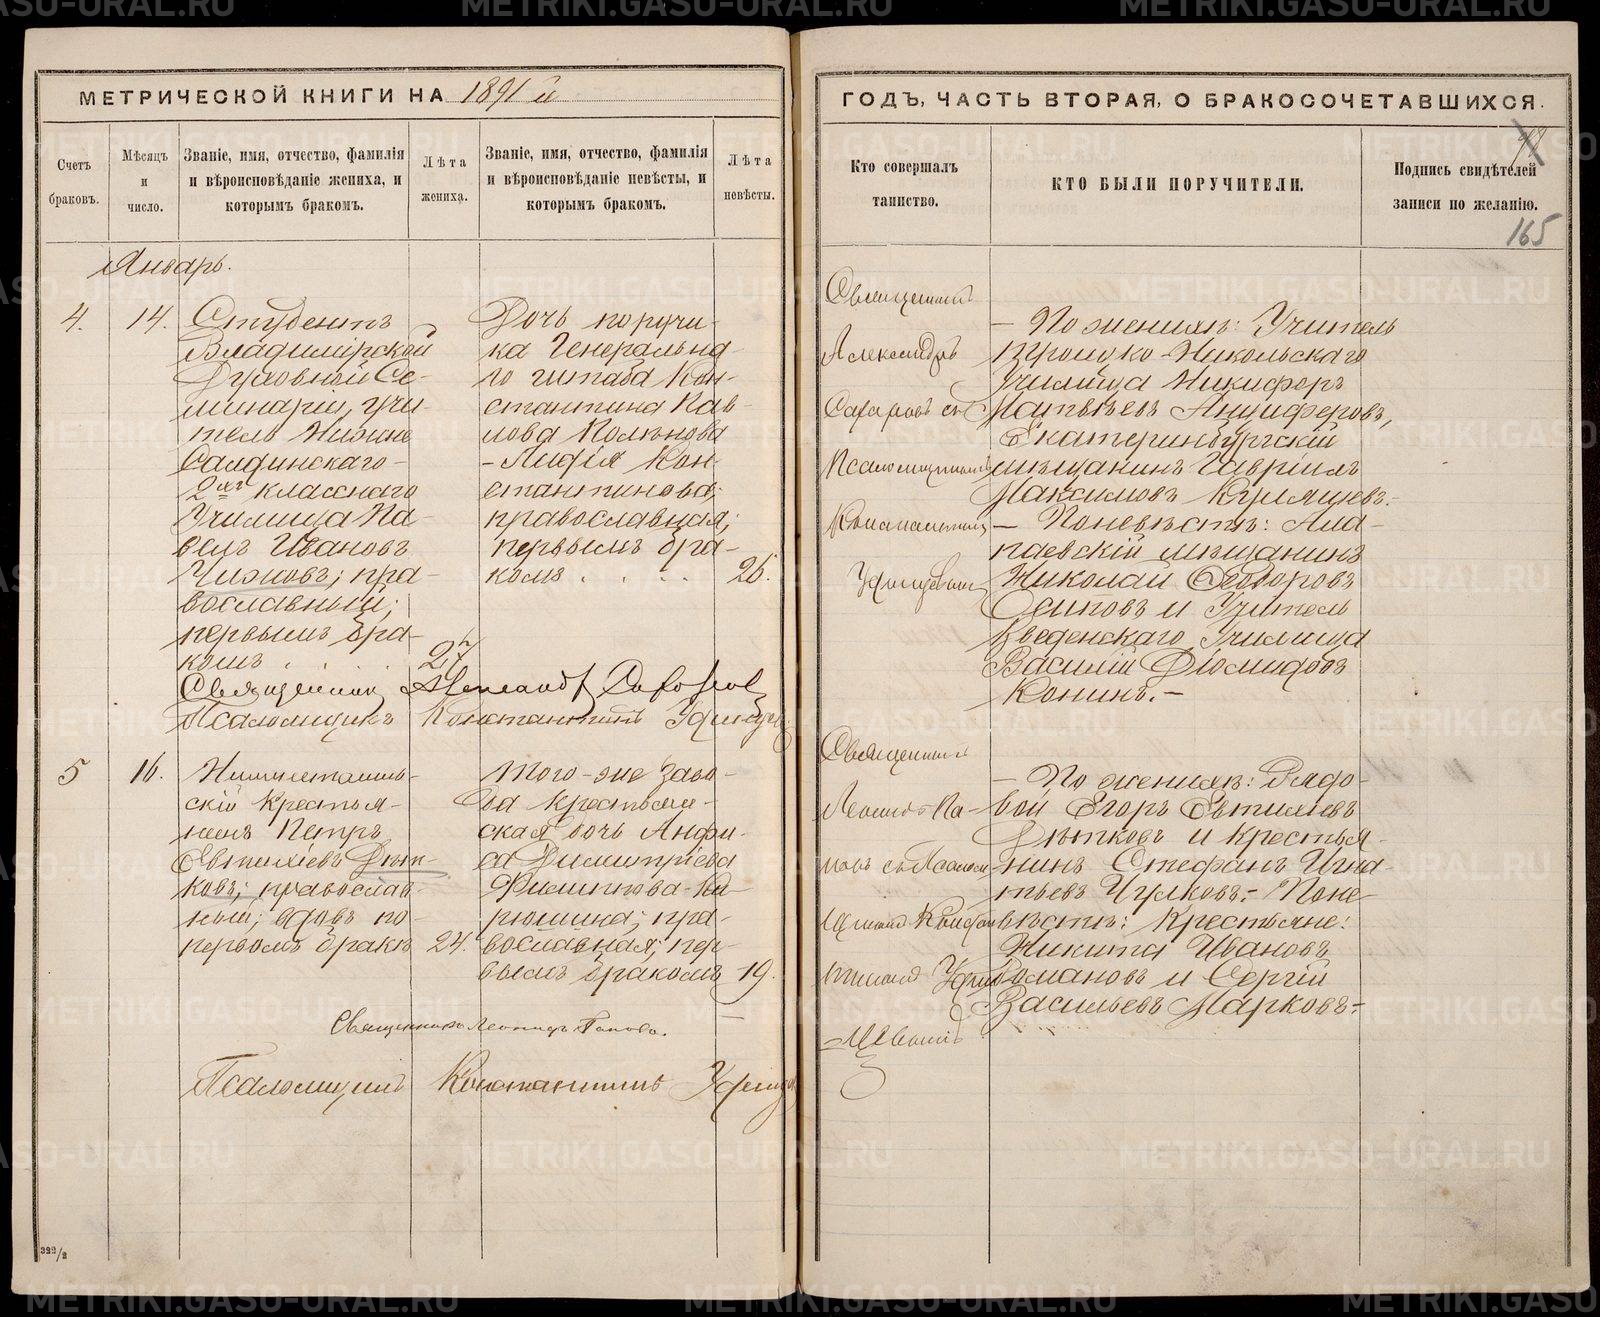 МЕТРИЧЕСКОЙ КНИГИ НА 1891й
Счетъ браковъ.
Мѣсяцъ и число.
Званіе, имя, отчество, фамилія
и вѣроисповѣданіе жениха, и
которымъ бракомъ.
Лѣта
жениха.
Званіе, имя, отчество, фамилія
и вѣроисповѣданіе невѣсты, и
которымъ бракомъ.
Лѣта
невѣсты.
Январь.
4. 14.
Студентъ
Владимірской
Духовной Се-
минаріи, учи-
тель Нижне
Салдинскаго
2хъ класснаго
Училища Па-
велъ Ивановъ
Чижовъ; пра-
вославный;
первымъ бра-
комъ . . . . 27
Дочь поручи-
ка Генерально-
го штаба Кон-
стантина Пав-
лова Колѣнова
- Лидія Кон-
стантинова;
православная;
первымъ бра-
комъ . . . . 26.
Священникъ Александръ Сахаровъ
Псаломщикъ Константинъ
5 16.
Нижнетагиль-
скій Крестья-
нинъ Петръ
Евтихіевъ Дѣт-
ковъ; православ-
ный; вдовъ по-
первомъ бракѣ 24.
Того-же заво-
да крестьян-
ская дочь Анфи-
са Димитріева
православная; пер-
вымъ бракомъ 19.
Священникъ Леонидъ Поповъ.
Псаломщикъ Константинъ
322/2
ГОДЪ, ЧАСТЬ ВТОРАЯ, О БРАКОСОЧЕТАВШИХСЯ.
Кто совершалъ
таинство.
КТО БЫЛИ ПОРУЧИТЕЛИ.
Подпись свидѣтелей
записи по желанію.
165
Священникъ
Александръ
Сахаровъ съ
Псаломщикомъ
Константиномъ
- По женихѣ: Учитель
Троицко-Никольскаго
Училища Никифоръ
Матвѣевъ Анциферовъ,
Екатеринбургскій
мѣщанинъ Гавріилъ
Максимовъ Кирляшевъ.
- По невѣстѣ: Ала-
паевскій мѣщанинъ
Николай Ѳедоровъ
Осиповъ и Учитель
Введенскаго Училища
Василій Діомидовъ
Конинъ.-
Священникъ
Леонидъ По-
повъ съ Псалом-
щикомъ Констан-
тиномъ
- По женихѣ: Рядо-
вой Егоръ Евтихіевъ
Дѣтковъ и крестья-
нинъ Стефанъ Игна-
тьевъ Чулковъ.- По не-
вѣстѣ: Крестьяне:
Никита Ивановъ
Романовъ и Сергій
Васильевъ Марковъ.-
METRIKI.GASO-URAL.RU